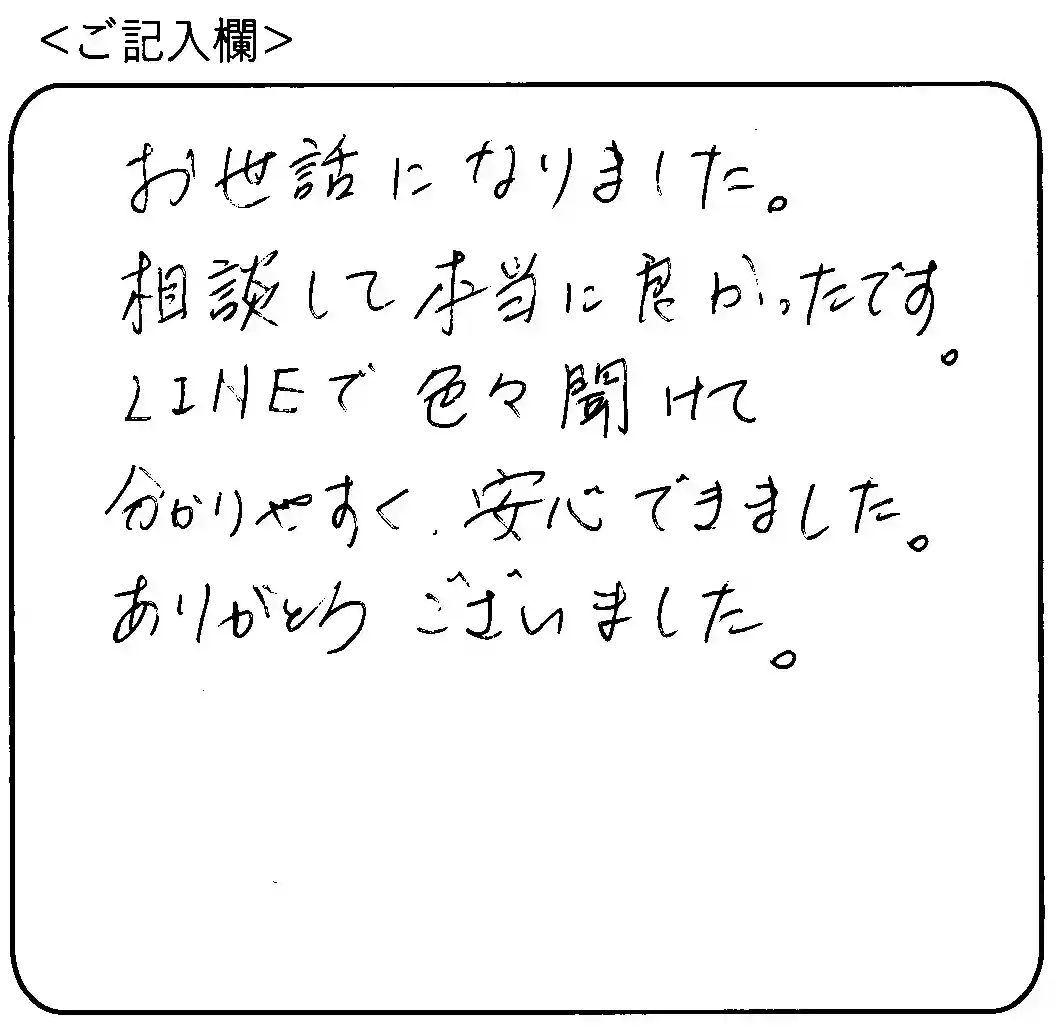 ＜ご記入欄＞
お世話になりました。
相談して本当に良かったです。
LINEで色々聞けて
分かりやすく、安心できました。
ありがとうございました。